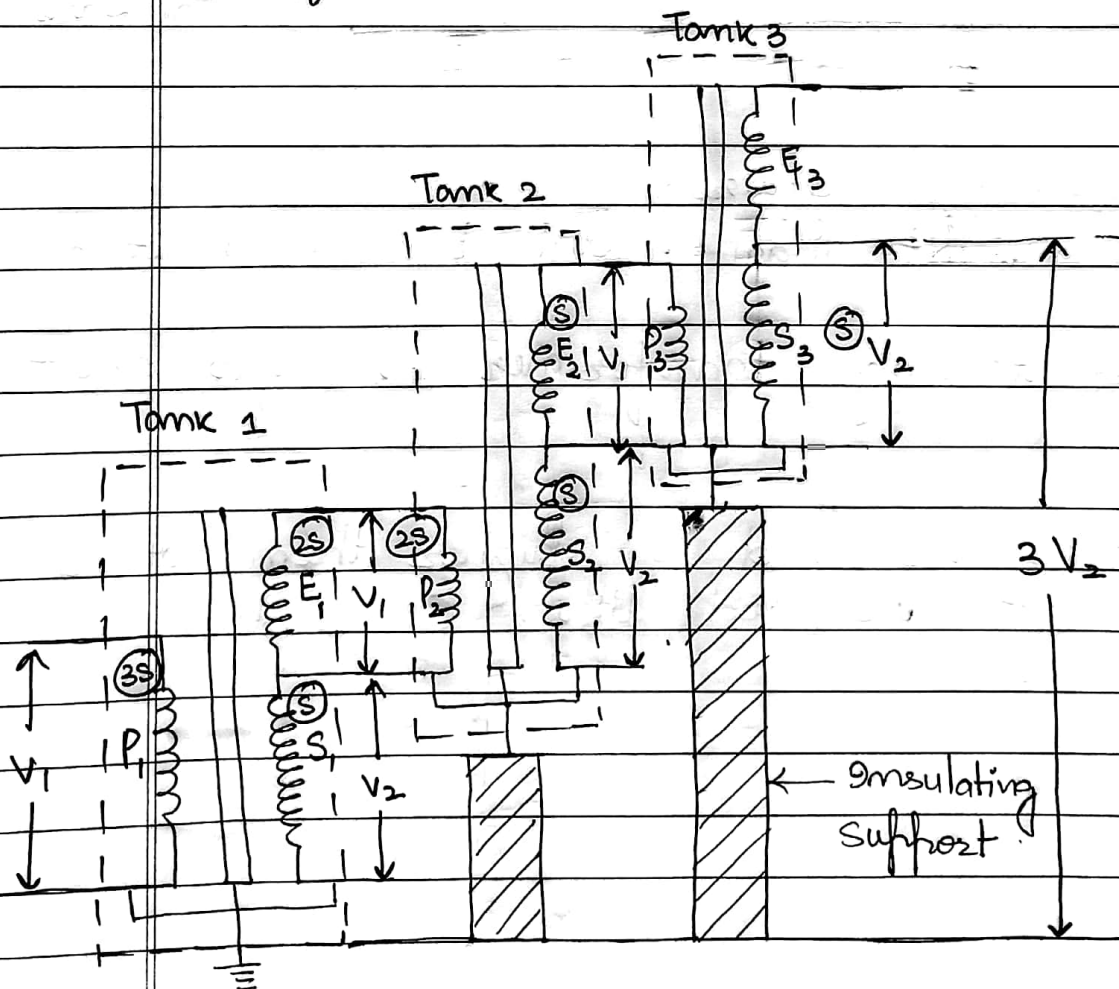 Tank 3
E3
Tank 2
S
E2
V1
P3
S3
S
V2
Tank 1
S
S2
V2
2S
E1
V1
2S
P2
3V2
3S
P1
V1
S
S1
V2
Insulating
Support.